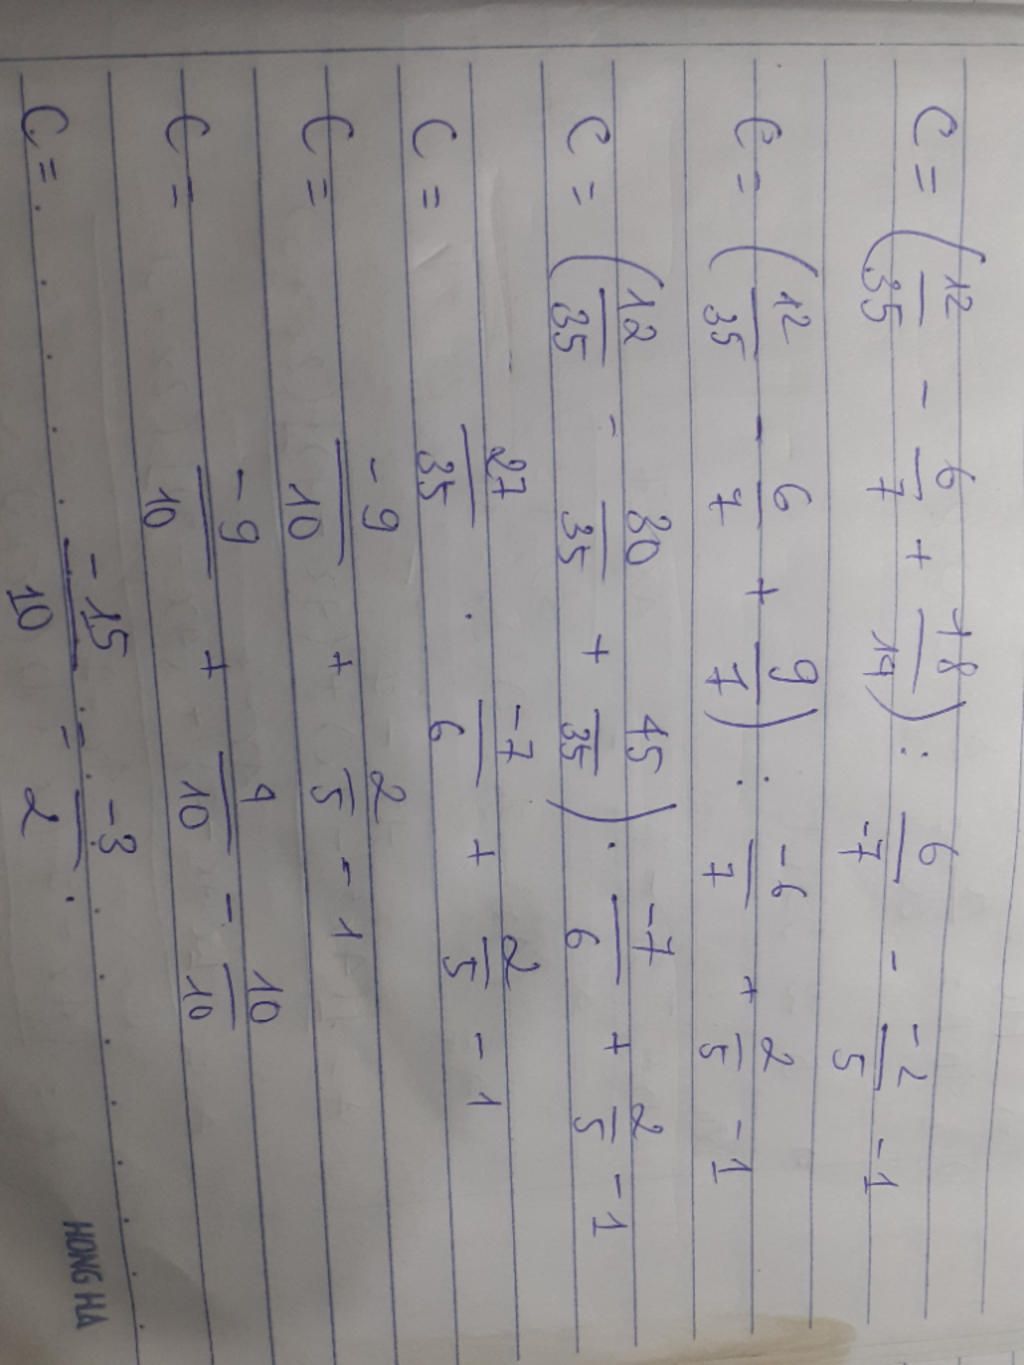 C = (12/35 - 6/7 + 18/14) : 6/-7 - -2/5 - 1
C = (12/35 - 6/7 + 9/7) : -6/7 + 2/5 - 1
C = (12/35 - 30/35 + 45/35) . -7/6 + 2/5 - 1
C = 27/35 . -7/6 + 2/5 - 1
C = -9/10 + 2/5 - 1
C = -9/10 + 4/10 - 10/10
C = -15/10 = -3/2 .
HONG HA